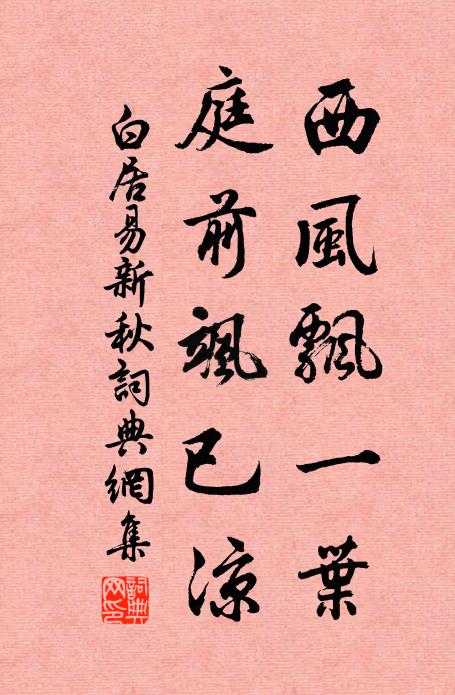 西風飄一葉
庭前颯已涼
白居易新秋詞典網集
詞典
网印